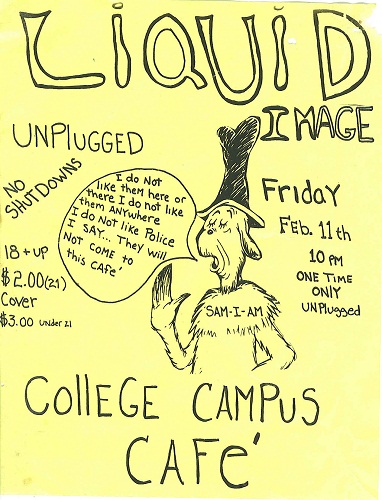 LiQUiD
IMAGE
UNPlUGGED
NO
SHUTDOWNS
I do Not
like them here or
there I do not like
them ANYwhere
I do Not like Police
I SAY... They will
Not COME to
this CAFe'
Friday
FEB. 11th
10 PM
ONE TIME
ONLY
UNPlugged
18 + UP
$2.00(21)
Cover
$3.00 UNder 21
SAM-I-AM
CollEGE CAMPUS
CAFe'